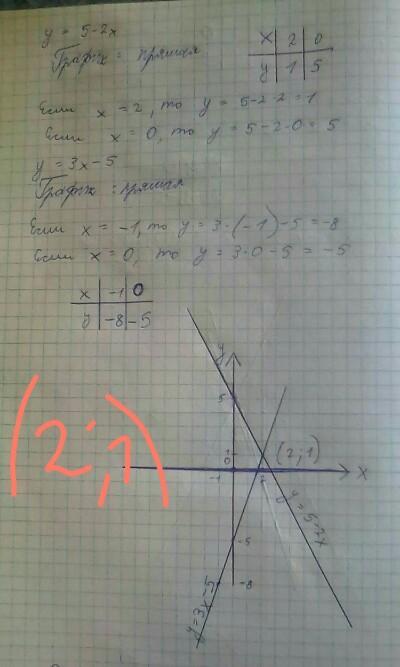 y = 5-2x
График: прямая
x 2 0
y 1 5
Если x = 2, то y = 5-2·2 = 1
Если x = 0, то y = 5-2·0 = 5
y = 3x-5
График: прямая
Если x = -1, то y = 3·(-1)-5 = -8
Если x = 0, то y = 3·0-5 = -5
x -1 0
y -8 -5
y
5
(2;1)
1
0
(2;1)
-1
2
x
y = 5-2x
-5
-8
y = 3x-5